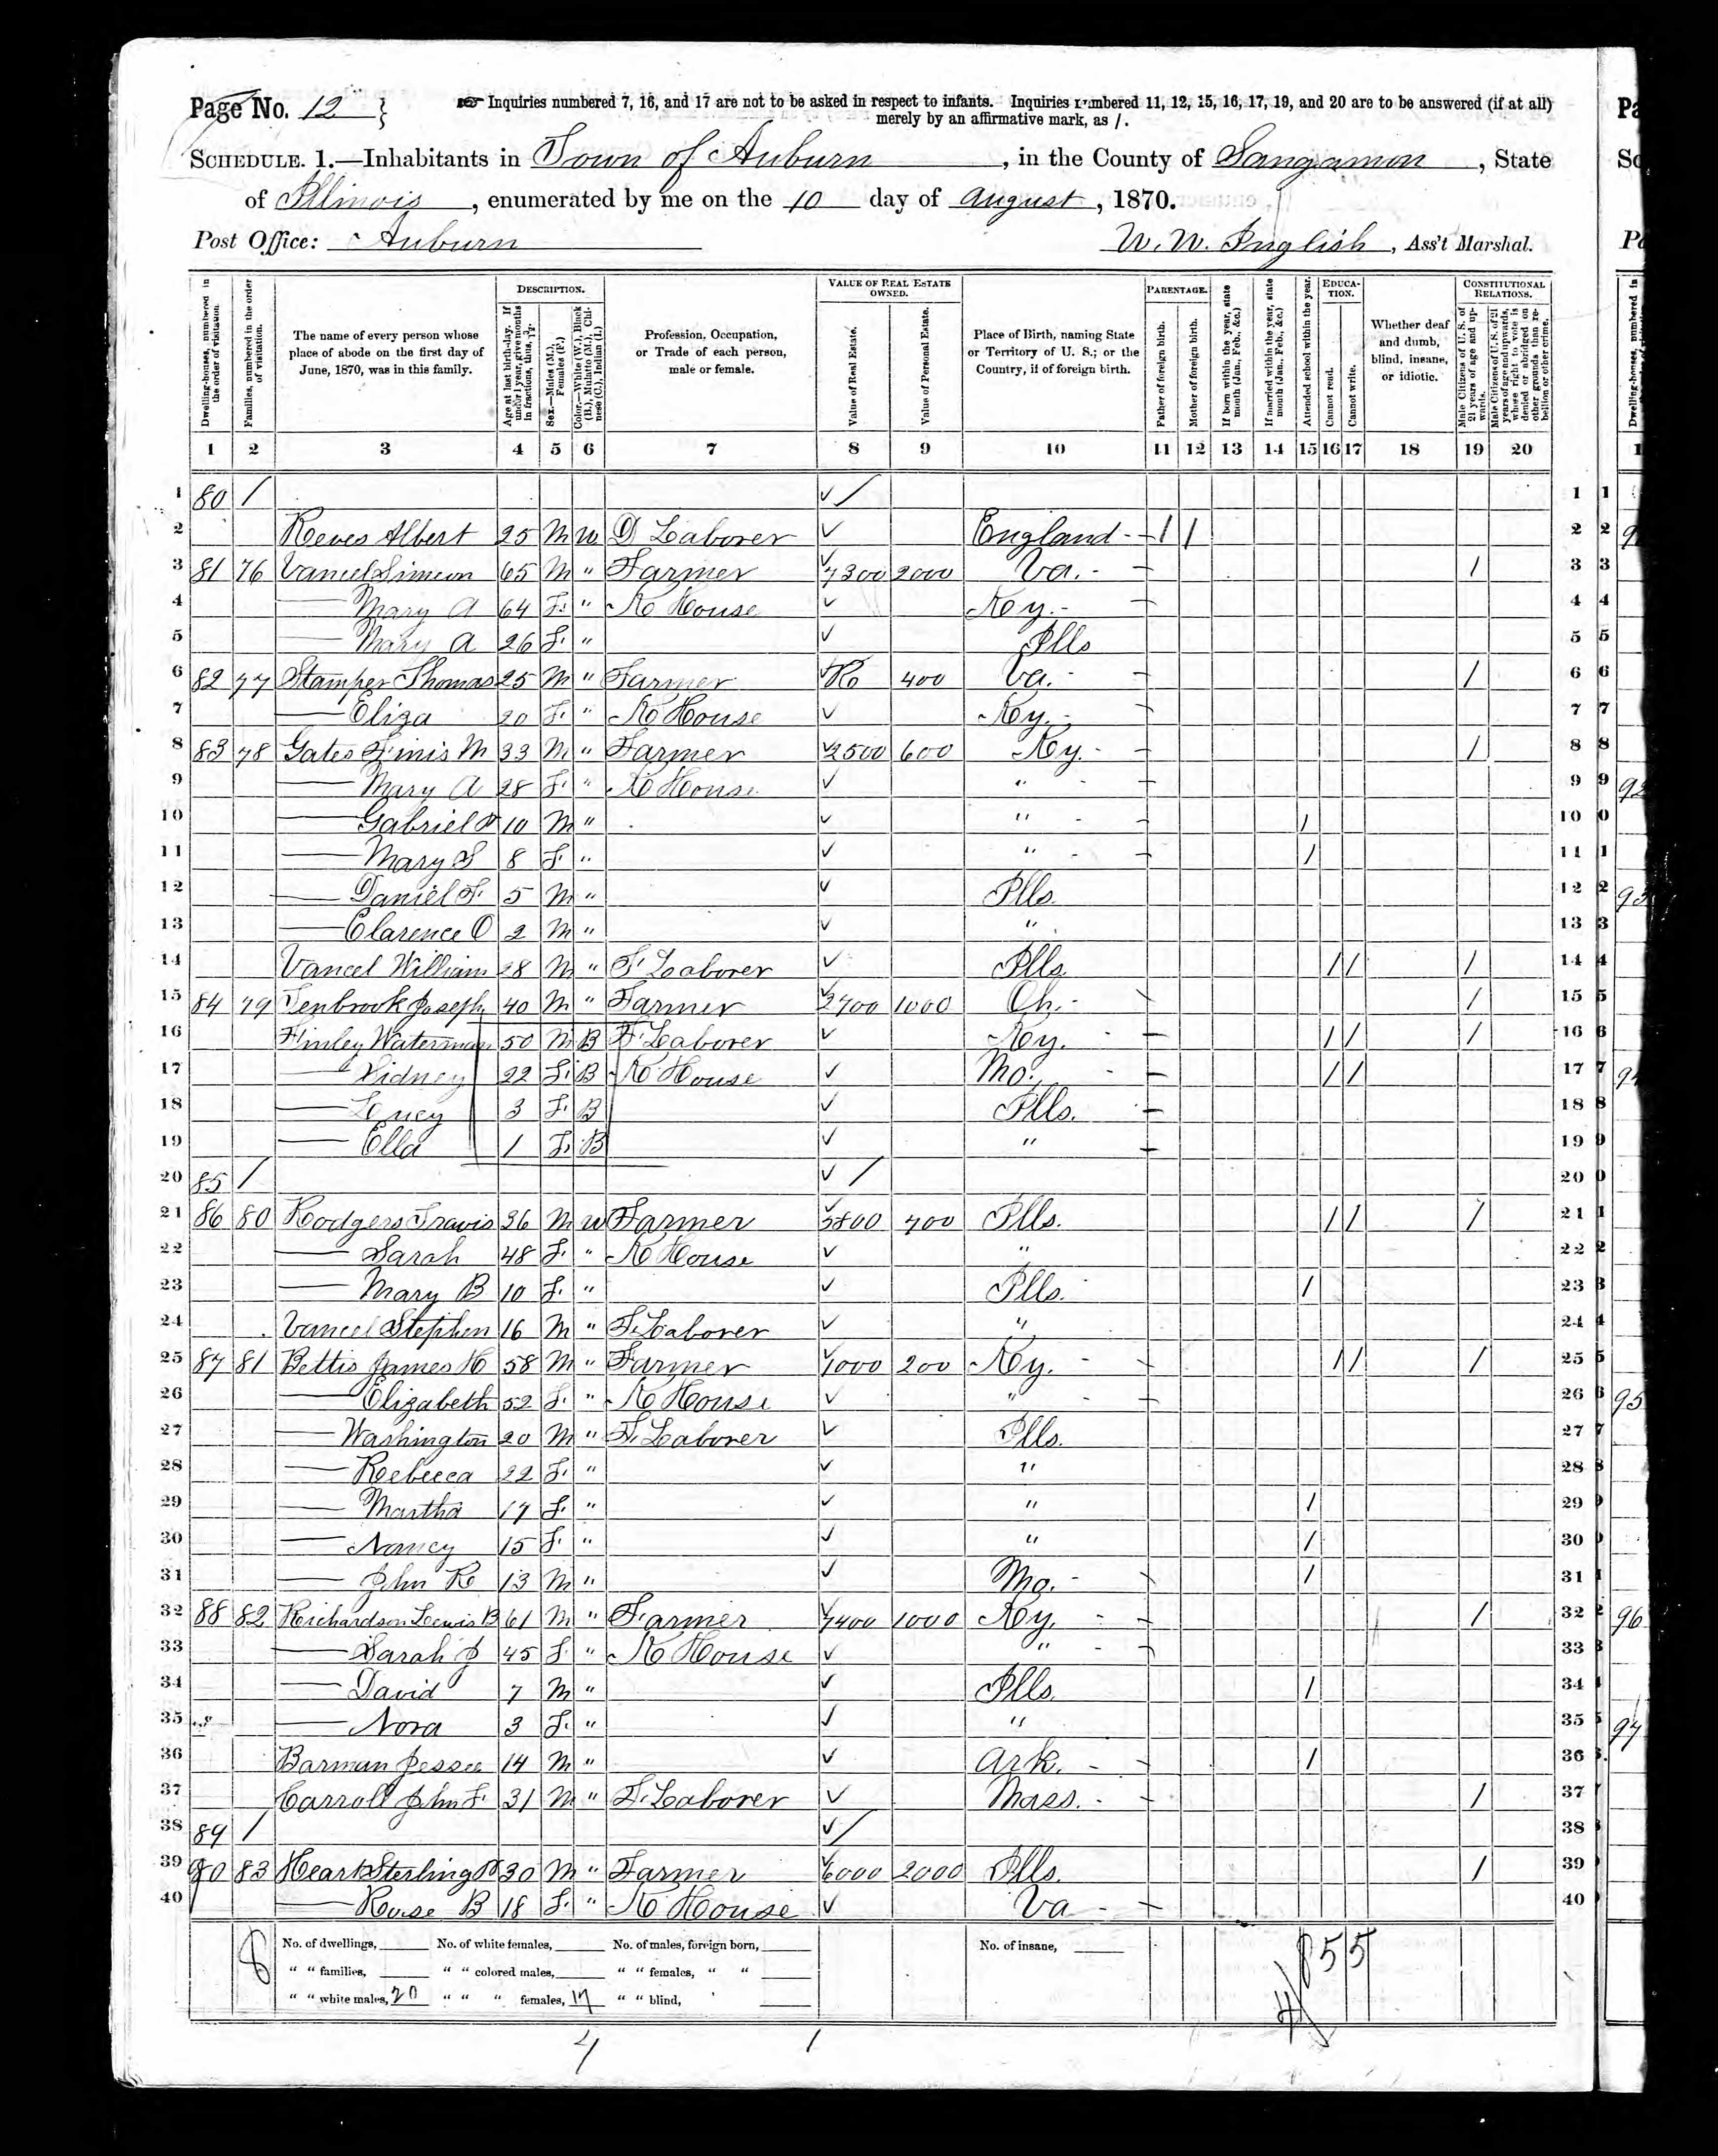 Page No. 12 } Inquiries numbered 7, 16, and 17 are not to be asked in respect to infants. Inquiries numbered 11, 12, 15, 16, 17, 19, and 20 are to be answered (if at all)
merely by an affirmative mark, as /.
SCHEDULE. 1.—Inhabitants in Town of Auburn, in the County of Sangamon, State
of Illinois, enumerated by me on the 10 day of August, 1870.
Post Office: Auburn W. W. English, Ass't Marshal.
Dwelling-houses, numbered in the order of visitation.
Families, numbered in the order of visitation.
The name of every person whose place of abode on the first day of June, 1870, was in this family.
DESCRIPTION.
Age at last birth-day. If under 1 year, give months in fractions, thus, 3/12.
Sex.—Males (M.), Females (F.)
Color.—White (W.), Black (B.), Mulatto (M.), Chinese (C.), Indian (I.)
Profession, Occupation, or Trade of each person, male or female.
VALUE OF REAL ESTATE OWNED.
Value of Real Estate.
Value of Personal Estate.
Place of Birth, naming State or Territory of U. S.; or the Country, if of foreign birth.
PARENTAGE.
Father of foreign birth.
Mother of foreign birth.
If born within the year, state month (Jan., Feb., &c.)
If married within the year, state month (Jan., Feb., &c.)
Attended school within the year.
EDUCATION.
Cannot read.
Cannot write.
Whether deaf and dumb, blind, insane, or idiotic.
CONSTITUTIONAL RELATIONS.
Male Citizens of U. S. of 21 years of age and upwards.
Male Citizens of U. S. of 21 years of age and upwards, whose right to vote is denied or abridged on other grounds than rebellion or other crime.
1 2 3 4 5 6 7 8 9 10 11 12 13 14 15 16 17 18 19 20
1 80 / ✓ / 1
2 Reves Albert 25 M W D Laborer ✓ England / / 2
3 81 76 Vancel Simeon 65 M " Farmer 7300 2000 Va. / 3
4 —— Mary A 64 F. " K House ✓ Key. 4
5 —— Mary A 26 F. " ✓ Ills 5
6 82 77 Stamper Thomas 25 M " Farmer R 400 Va. / 6
7 —— Eliza 20 F. " K House ✓ Key. 7
8 83 78 Gates Finis M 33 M " Farmer 2500 600 Key. / 8
9 —— Mary A 28 F. " K House ✓ " 9
10 —— Gabriel 10 M " ✓ " / 10
11 —— Mary S 8 F. " ✓ " / 11
12 —— Daniel F. 5 M " ✓ Ills. 12
13 —— Clarence O 2 M " ✓ " 13
14 Vancel William 28 M " F Laborer ✓ Ills. / / / 14
15 84 79 Tenbrook Joseph 40 M " Farmer 2700 1000 Oh. / 15
16 Finley Waterman 50 M B F Laborer ✓ Key. / / / 16
17 —— Sidney 22 F. B K House ✓ Mo. / / 17
18 —— Loucy 3 F. B ✓ Ills. 18
19 —— Ella 1 F. B ✓ " 19
20 85 / ✓ / 20
21 86 80 Rodgers Travis 36 M W Farmer 5800 700 Ills. / / / 21
22 —— Sarah 48 F. " K House ✓ " 22
23 —— Mary B 10 F. " ✓ Ills. / 23
24 Vancel Stephen 16 M " F. Laborer ✓ " 24
25 87 81 Bettis James H 58 M " Farmer 1000 200 Key. / / / 25
26 —— Elizabeth 52 F. " K House ✓ " 26
27 —— Washington 20 M " F. Laborer ✓ Ills. 27
28 —— Rebecca 22 F. " ✓ " 28
29 —— Martha 17 F. " ✓ " / 29
30 —— Nancy 15 F. " ✓ " / 30
31 —— John R 13 M " ✓ Mo. / 31
32 88 82 Richardson Lewis B 61 M " Farmer 7400 1000 Key. / 32
33 —— Sarah J 45 F. " K House ✓ " 33
34 —— David 7 M " ✓ Ills. / 34
35 —— Nora 3 F. " ✓ " 35
36 Barman Jessee 14 M " ✓ Ark. / 36
37 Carroll John F. 31 M " F. Laborer ✓ Mass. / 37
38 89 / ✓ / 38
39 90 83 Heart Sterling 30 M " Farmer 6000 2000 Ills. / 39
40 —— Rose B 18 F. " K House ✓ Va 40
8 No. of dwellings, No. of white females, No. of males, foreign born, No. of insane, 8 5 5
" " families, " " colored males, " " females, " "
" " white males, 20 " " " females, 17 " " blind,
4 1